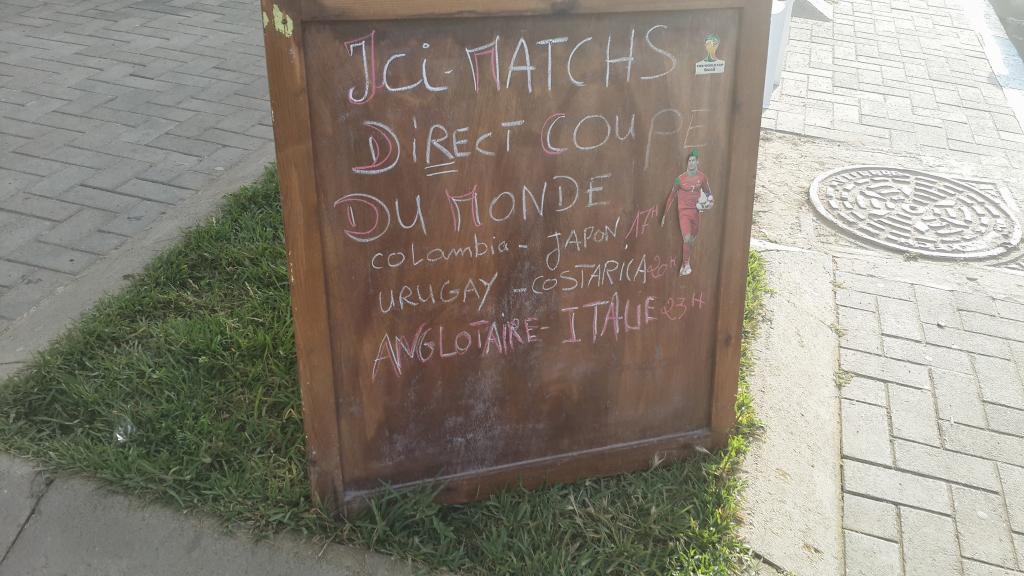 Ici - MATCHS
DiRECT COUPE
DU MONDE
COLOMBIA - JAPON 17H
URUGAY - COSTARICA 20H
ANGLOTAIRE - ITALIE 23H